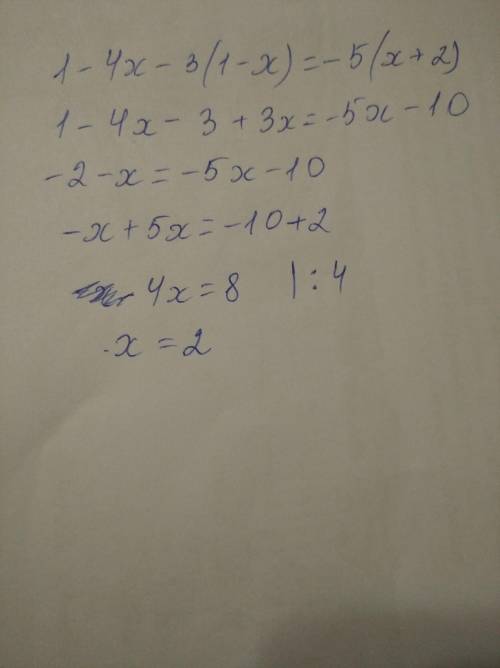 1 - 4x - 3(1-x) = -5(x+2)
1 - 4x - 3 + 3x = -5x - 10
-2 - x = -5x - 10
-x + 5x = -10 + 2
4x = 8 | : 4
x = 2